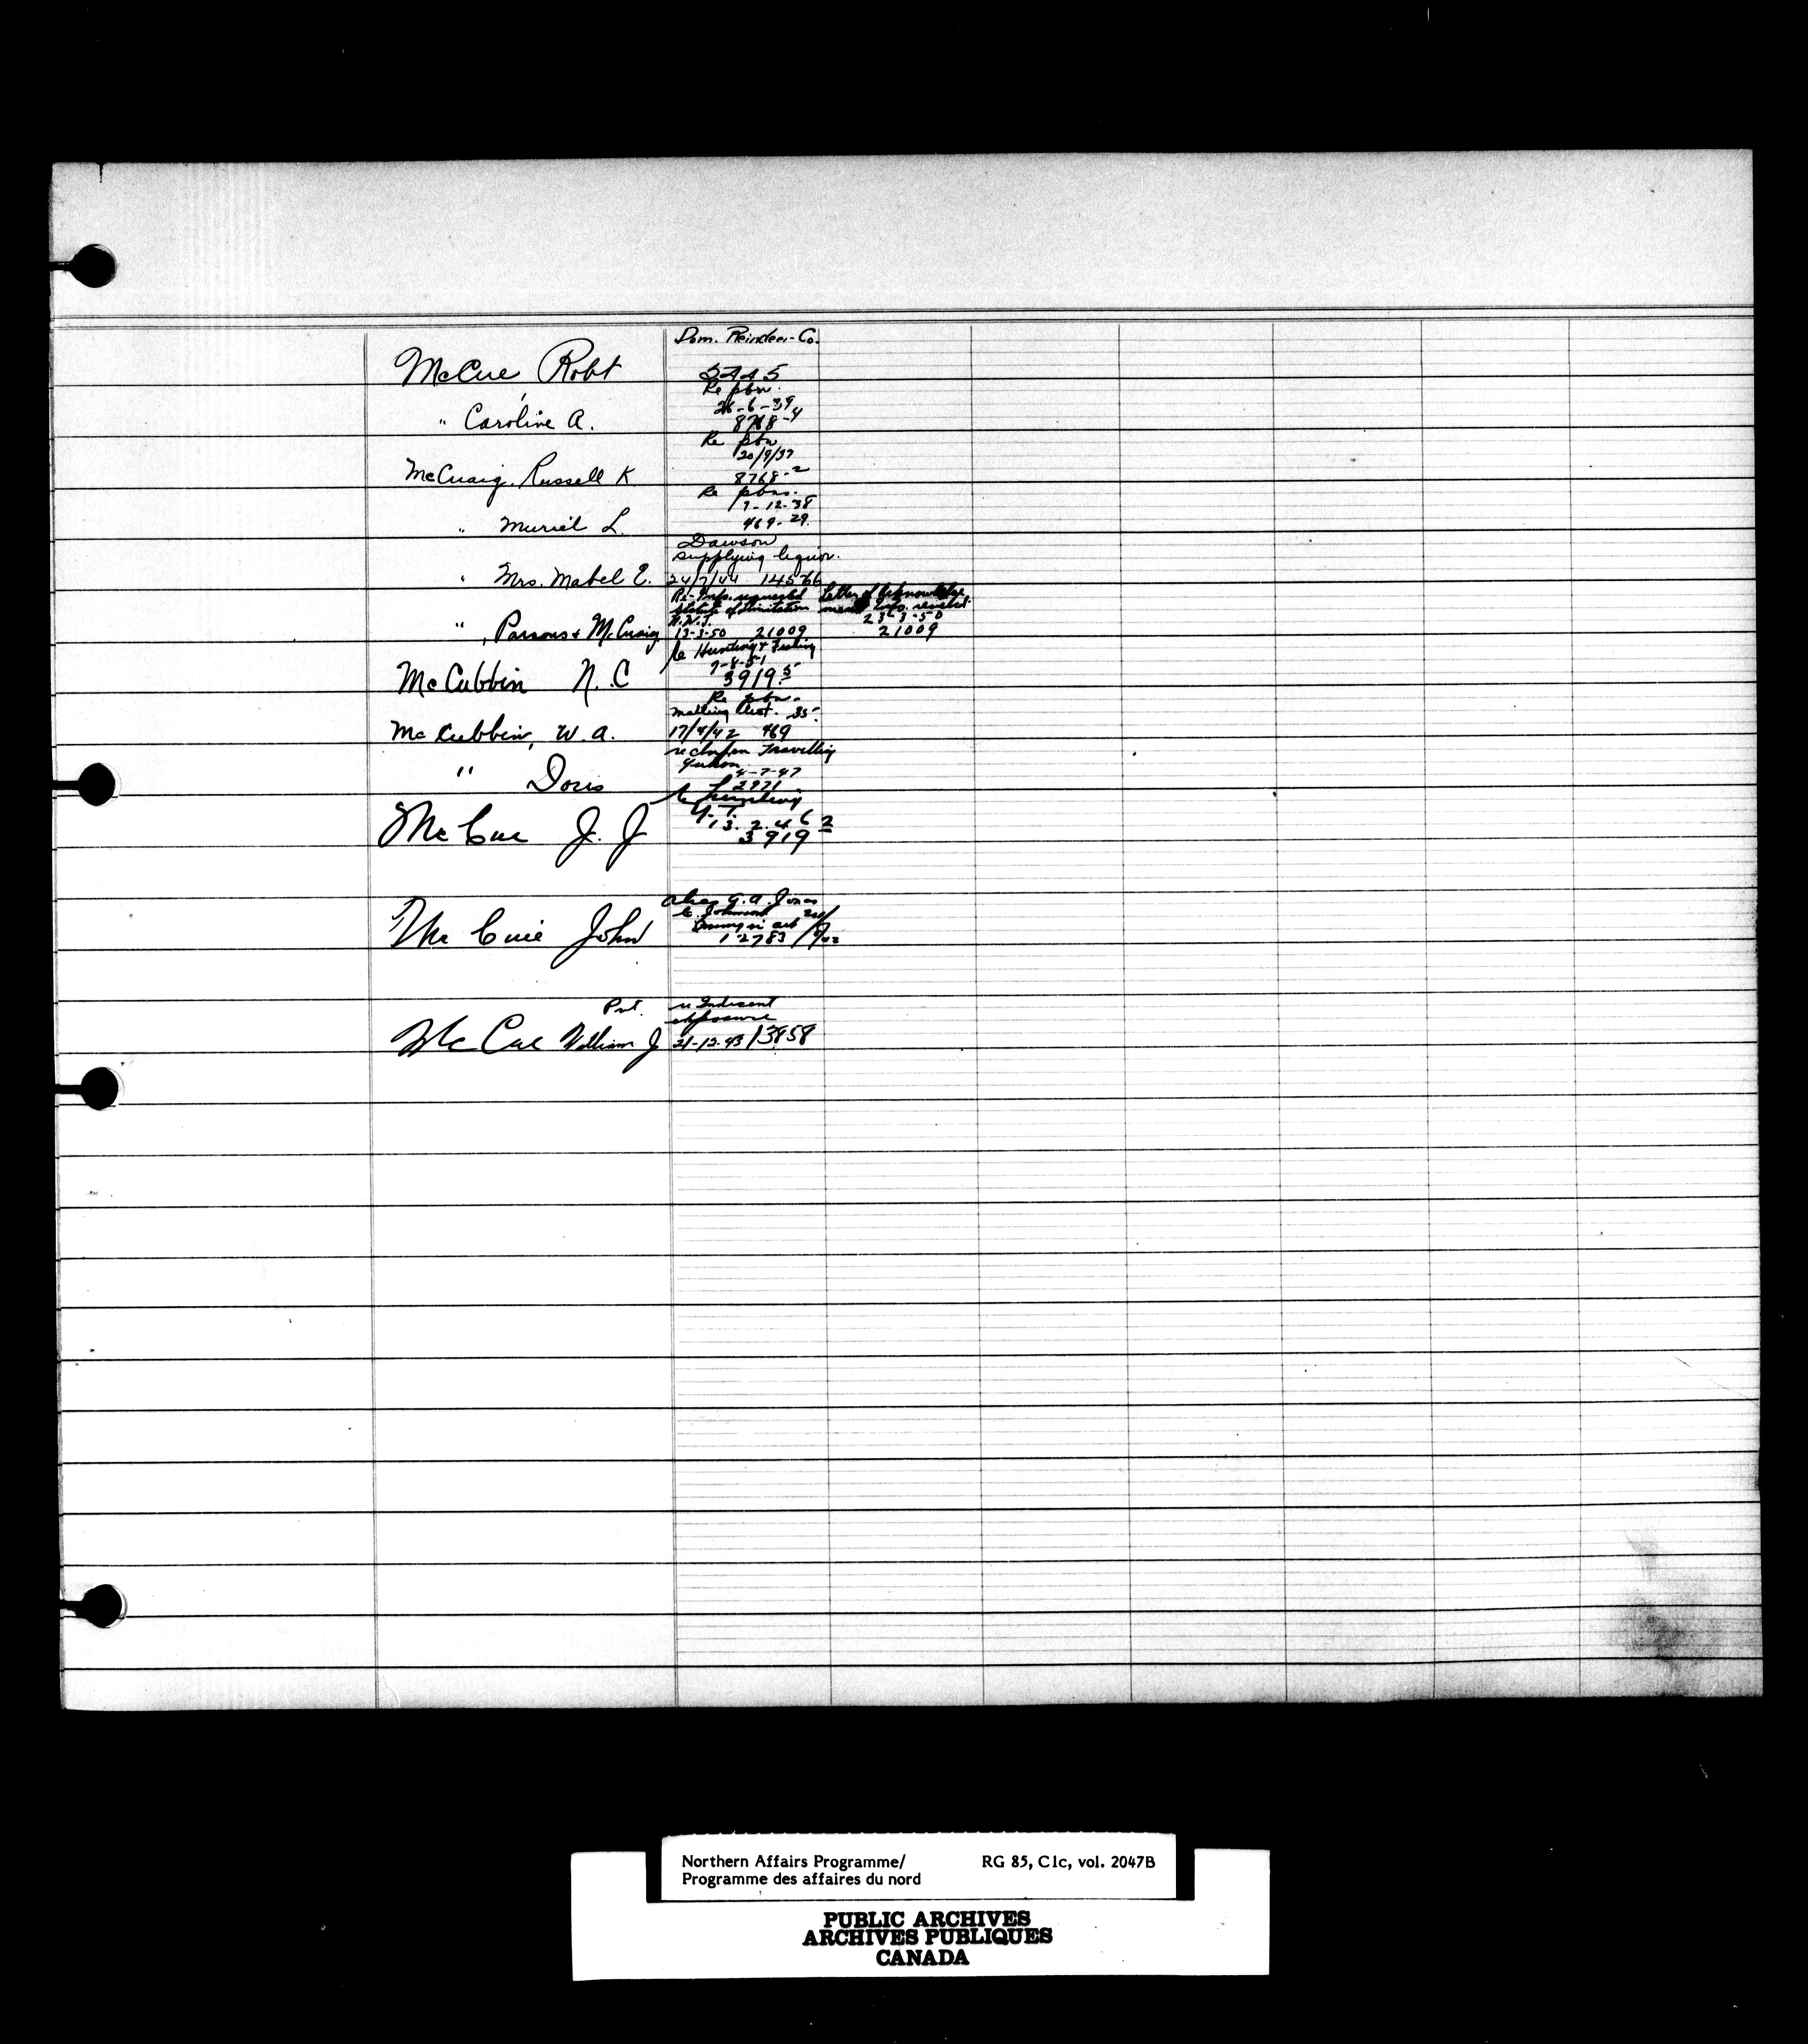 Dom. Reindeer Co.
McCue Robt 5445
Re pbn.
26-6-39
" Caroline A. 8768-4
Re pbn
20/9/37
McCuaig, Russell K 8768-2
Re pbns.
7-12-38
" Muriel L. 469-29.
Dawson
supplying liquor.
" Mrs. Mabel E. 24/7/44 14576
Re-Info. requested Letter of Acknowledge
Statute of Limitation ment Info. received
N.W.T. 23-3-50
", Parsons & McCuaig 13-3-50 21009 21009
Re Hunting & Fishing
7-8-51
McCubbin N.C 3919-5
Re pbn.
Mailing List. 35-
McCubbin, W.A. 17/4/42 469
Travelling
Yukon
4-7-47
" Doris 2971
Y.T.
13.2.46
McCue J.J 3919 2
alias G.A. Jones
McCuie John 12783
Pvt. re Indecent
exposure
McCue William J 21-12-43 13858
Northern Affairs Programme/ RG 85, C1c, vol. 2047B
Programme des affaires du nord
PUBLIC ARCHIVES
ARCHIVES PUBLIQUES
CANADA